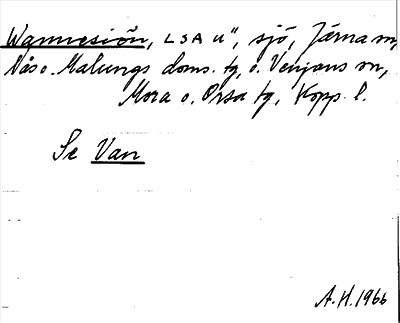 Wannesiön, LSA u", sjö, Järna sn,
Nås o. Malungs doms. tg, o. Venjans sn,
Mora o. Orsa tg, Kopp. l.
Se Van
A.H. 1966